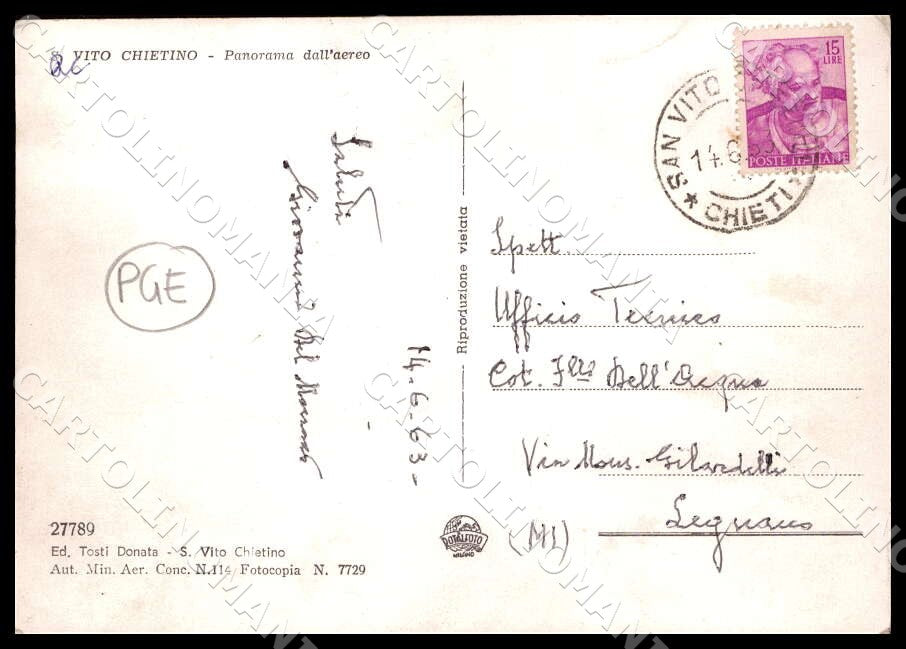 S. VITO CHIETINO - Panorama dall'aereo
15
LIRE
POSTE ITALIANE
SAN VITO
14.6.63
★ CHIETI
Saluti
Giovanni Del
14-6-63-
PGE
Riproduzione vietata
Spett.
Ufficio Tecnico
Cot. F.lli Dell'Acqua
Via Mons. Gilardelli
Legnano
(MI)
ROTALFOTO
MILANO
27789
Ed. Tosti Donata - S. Vito Chietino
Aut. Min. Aer. Conc. N.114 Fotocopia N. 7729
CARTOLINOMANIA